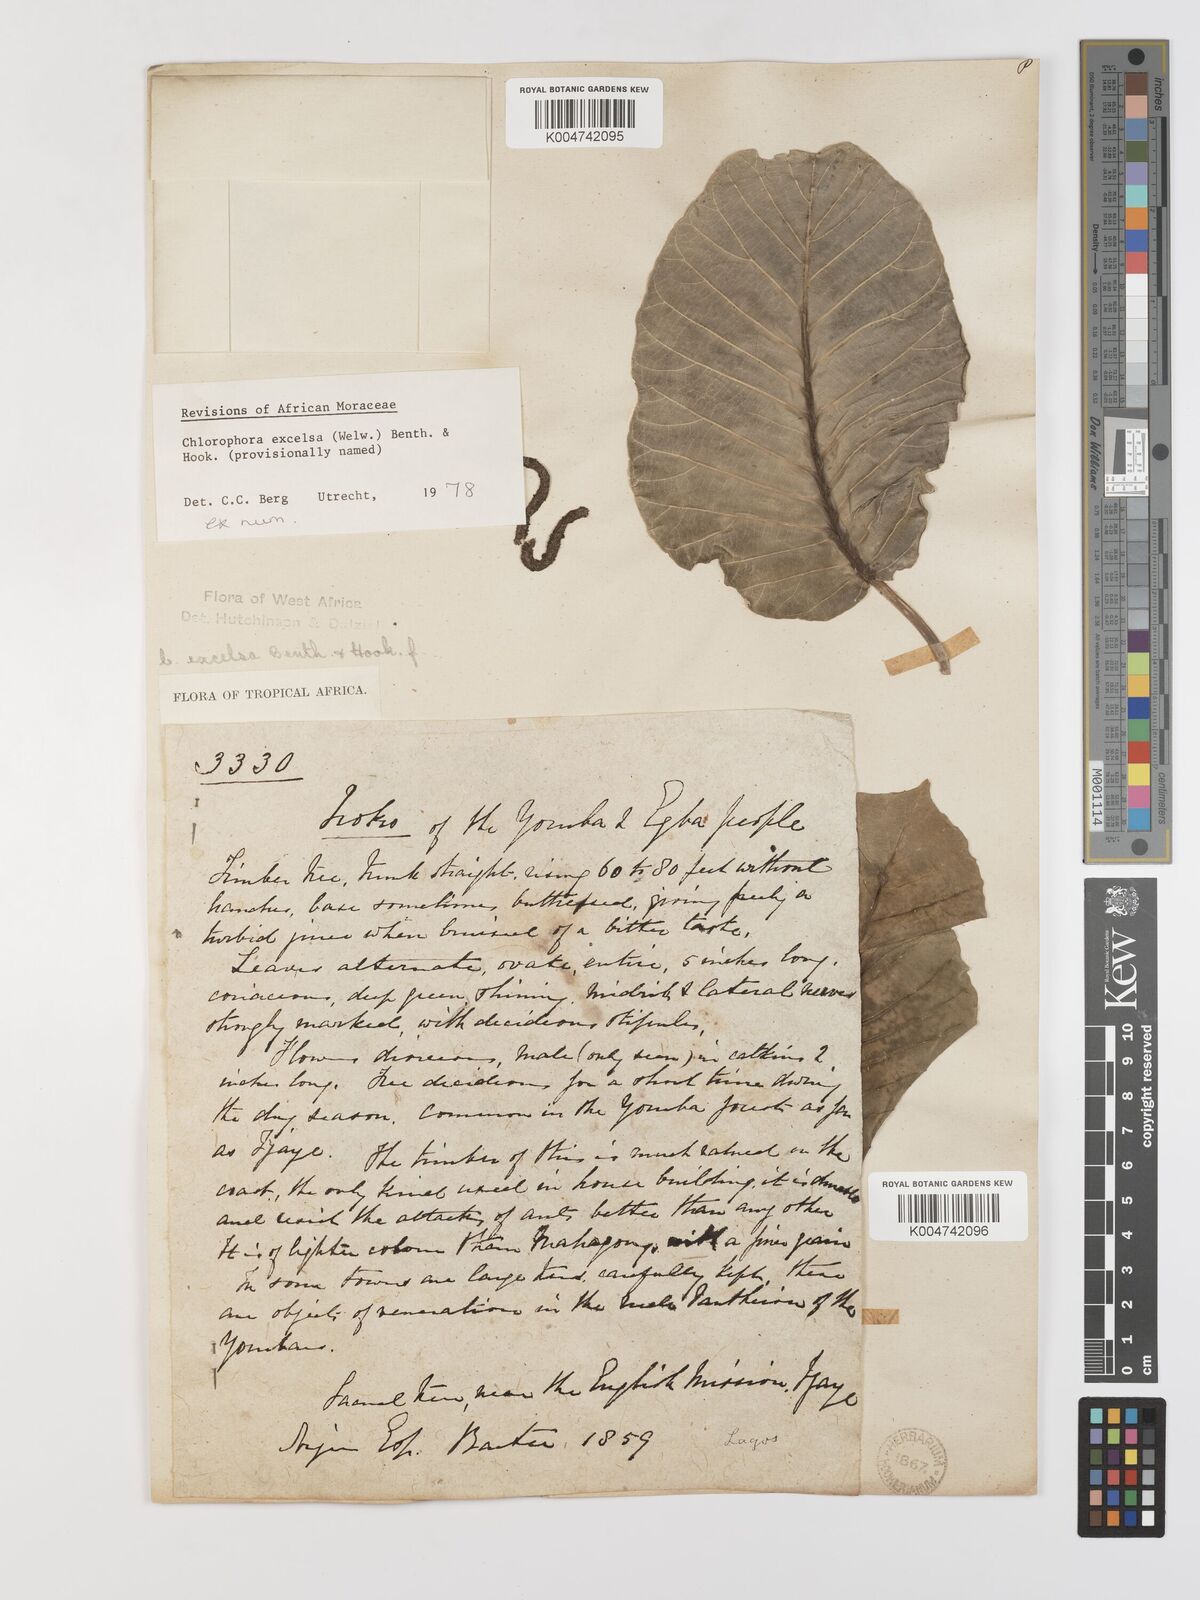 P
ROYAL BOTANIC GARDENS KEW
K004742095
Revisions of African Moraceae
Chlorophora excelsa (Welw.) Benth. &
Hook. (provisionally named)
Det. C.C. Berg Utrecht, 1978
ex num.
Flora of West Africa
Det. Hutchinson & Dalziel
C. excelsa Benth. & Hook. f
FLORA OF TROPICAL AFRICA.
3330
Iroko of the Yoruba & Egba people
Timber tree, trunk straight, rising 60 to 80 feet without
branches, base sometimes buttressed, giving freely a
turbid juice when bruised of a bitter taste.
Leaves alternate, ovate, entire, 5 inches long,
coriaceous, deep green, shining, midrib & lateral nerves
strongly marked, with decideous stipules,
Flowers dioecious, male (only seen) in catkins 2
inches long. Tree decideous for a short time during
the dry season. Common in the Yoruba forests as far
as Ijaye. The timber of this is much valued on the
coast, the only kind used in house building, it is durable
and resist the attacks of ants better than any other
It is of lighter colour than Mahagony, with a finer grain
In some towns are large trees, carefully kept, these
are objects of veneration in the Pantheion of the
Yorubans.
Sacred tree, near the English Mission, Ijaye
Niger Exp. Barter, 1859
Lagos
HERBARIUM
1867
HOOKERIANUM
ROYAL BOTANIC GARDENS KEW
K004742096
inches
Density
Don Williams
M001114
Kew
Royal Botanic Gardens
copyright reserved
0 1 2 3 4 5 6 7 8 9 10
cm